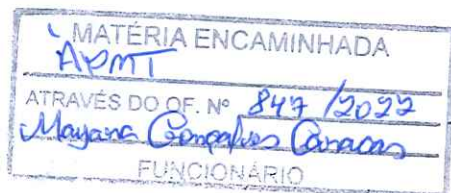 MATÉRIA ENCAMINHADA
À PMT
ATRAVÉS DO OF. Nº 847 /2022
Mayara Gonçalves
FUNCIONÁRIO